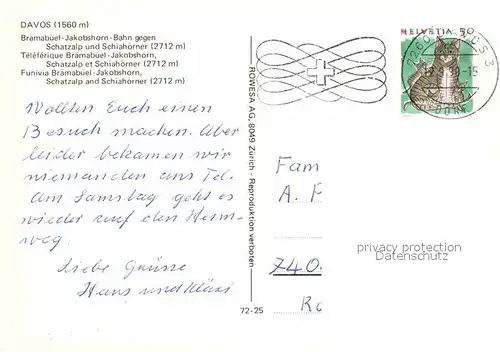 DAVOS (1560 m)
Brämabüel-Jakobshorn-Bahn gegen
Schatzalp und Schiahörner (2712 m)
Téléférique Brämabüel-Jakobshorn,
Schatzalp et Schiahörner (2712 m)
Funivia Brämabüel-Jakobshorn,
Schatzalp and Schiahörner (2712 m)
Wollten Euch einen
Besuch machen. Aber
leider bekamen wir
niemanden ans Tel.
Am Samstag geht es
wieder auf den Heim-
weg.
Liebe Grüsse
Hans und Kläxi
72-25
ROWESA AG, 8049 Zürich - Reproduktion verboten
HELVETIA 50
Fam
A. F
740
Ra
privacy protection
Datenschutz